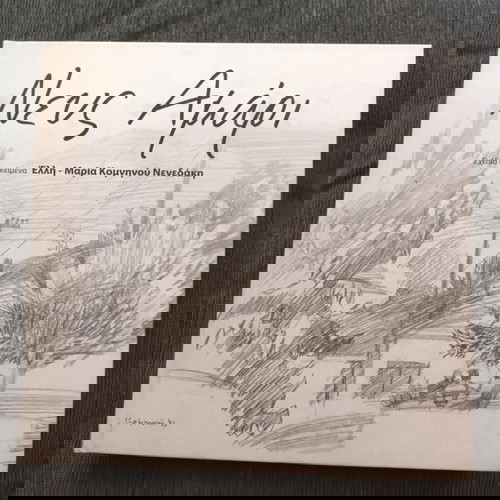 Νευς Αμάρι
σχέδια
κείμενα Έλλη - Μαρία Κομνηνού Νενεδάκη